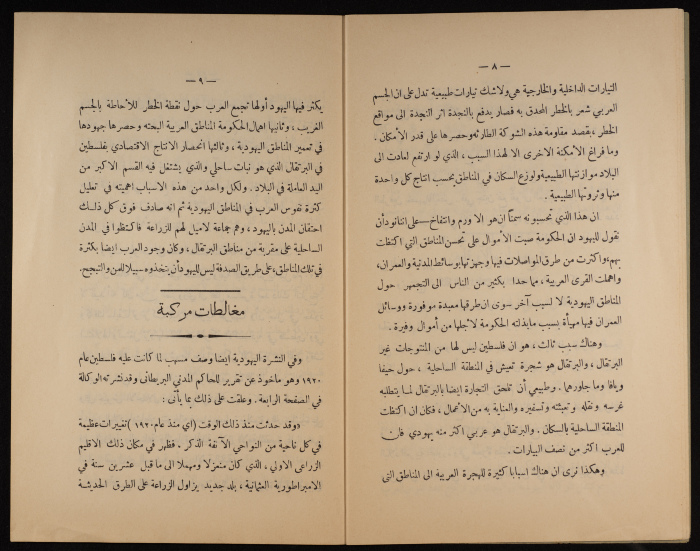 — ٨ —
التيارات الداخلية والخارجية هي ولاشك تيارات طبيعية تدل على ان الجسم
العربي شعر بالخطر المحدق به فصار يدفع بالنجدة اثر النجدة الى مواقع
الخطر، بقصد مقاومة هذه الشوكة الطارئة وحصرها على قدر الأمكان.
وما فراغ الأمكنة الاخرى الا لهذا السبب، الذي لو ارتفع لعادت الى
البلاد موازنتها الطبيعية ولوزع السكان في المناطق بحسب انتاج كل واحدة
منها وثروتها الطبيعية.
ان هذا الذي تحسبونه سمناً ان هو الا ورم وانتفاخ — على اننا نود أن
نقول لليهود ان الحكومة صبت الأموال على تحسن المناطق التي اكتظت
بهم، واكثرت من طرق المواصلات فيها وجهزتها بوسائط المدنية والعمران،
واهملت القرى العربية، مما حدا بكثير من الناس الى التجمهر حول
المناطق اليهودية لا لسبب آخر سوى ان طرقها معبدة موفورة ووسائل
العمران فيها مهيأة بسبب ما بذلته الحكومة لاجلها من أموال وفيرة.
وهناك سبب ثالث، هو ان فلسطين ليس لها من المنتوجات غير
البرتقال، والبرتقال هو شجرة تعيش في المنطقة الساحلية، حول حيفا
ويافا وما جاورهما. وطبيعي أن تلحق التجارة ايضا بالبرتقال لما يتطلبه
غرسه ونقله وتعبئته وتسفيره والعناية به من الأعمال، فكان ان اكتظت
المنطقة الساحلية بالسكان. والبرتقال هو عربي اكثر منه يهودي فان
للعرب اكثر من نصف البيارات.
وهكذا نرى ان هناك اسبابا كثيرة للهجرة العربية الى المناطق التي
— ٩ —
يكثر فيها اليهود أولها تجمع العرب حول نقطة الخطر للأحاطة بالجسم
الغريب، وثانيها اهمال الحكومة المناطق العربية البحته وحصرها جهودها
في تعمير المناطق اليهودية، وثالثها انحصار الانتاج الاقتصادي بفلسطين
في البرتقال الذي هو نبات ساحلي والذي يشتغل فيه القسم الاكبر من
اليد العاملة في البلاد. ولكل واحد من هذه الاسباب اهميته في تعليل
كثرة نفوس العرب في المناطق اليهودية ثم انه صادف فوق كل ذلك
احتقان المدن باليهود، وهم جماعة لاميل لهم للزراعة فاكتظوا في المدن
الساحلية على مقربة من مناطق البرتقال، وكان وجود العرب ايضا بكثرة
في تلك المناطق، على طريق الصدفة ليس لليهود أن يتخذوه سبيلا للمن والتبجح.
مغالطات مركبة
وفي النشرة اليهودية ايضا وصف مسهب لما كانت عليه فلسطين عام
١٩٢٠ وهو مأخوذ عن تقرير للحاكم المدني البريطاني وقد نشرته الوكالة
في الصفحة الرابعة. وعلقت على ذلك بما يأتي:
«وقد حدثت منذ ذلك الوقت (اي منذ عام ١٩٢٠) تغييرات عظيمة
في كل ناحية من النواحي الآنفة الذكر. فظهر في مكان ذلك الاقليم
الزراعي الاولي، الذي كان منعزلا ومهملا الى ما قبل عشرين سنة في
الامبراطورية العثمانية، بلد جديد يزاول الزراعة على الطرق الحديثة